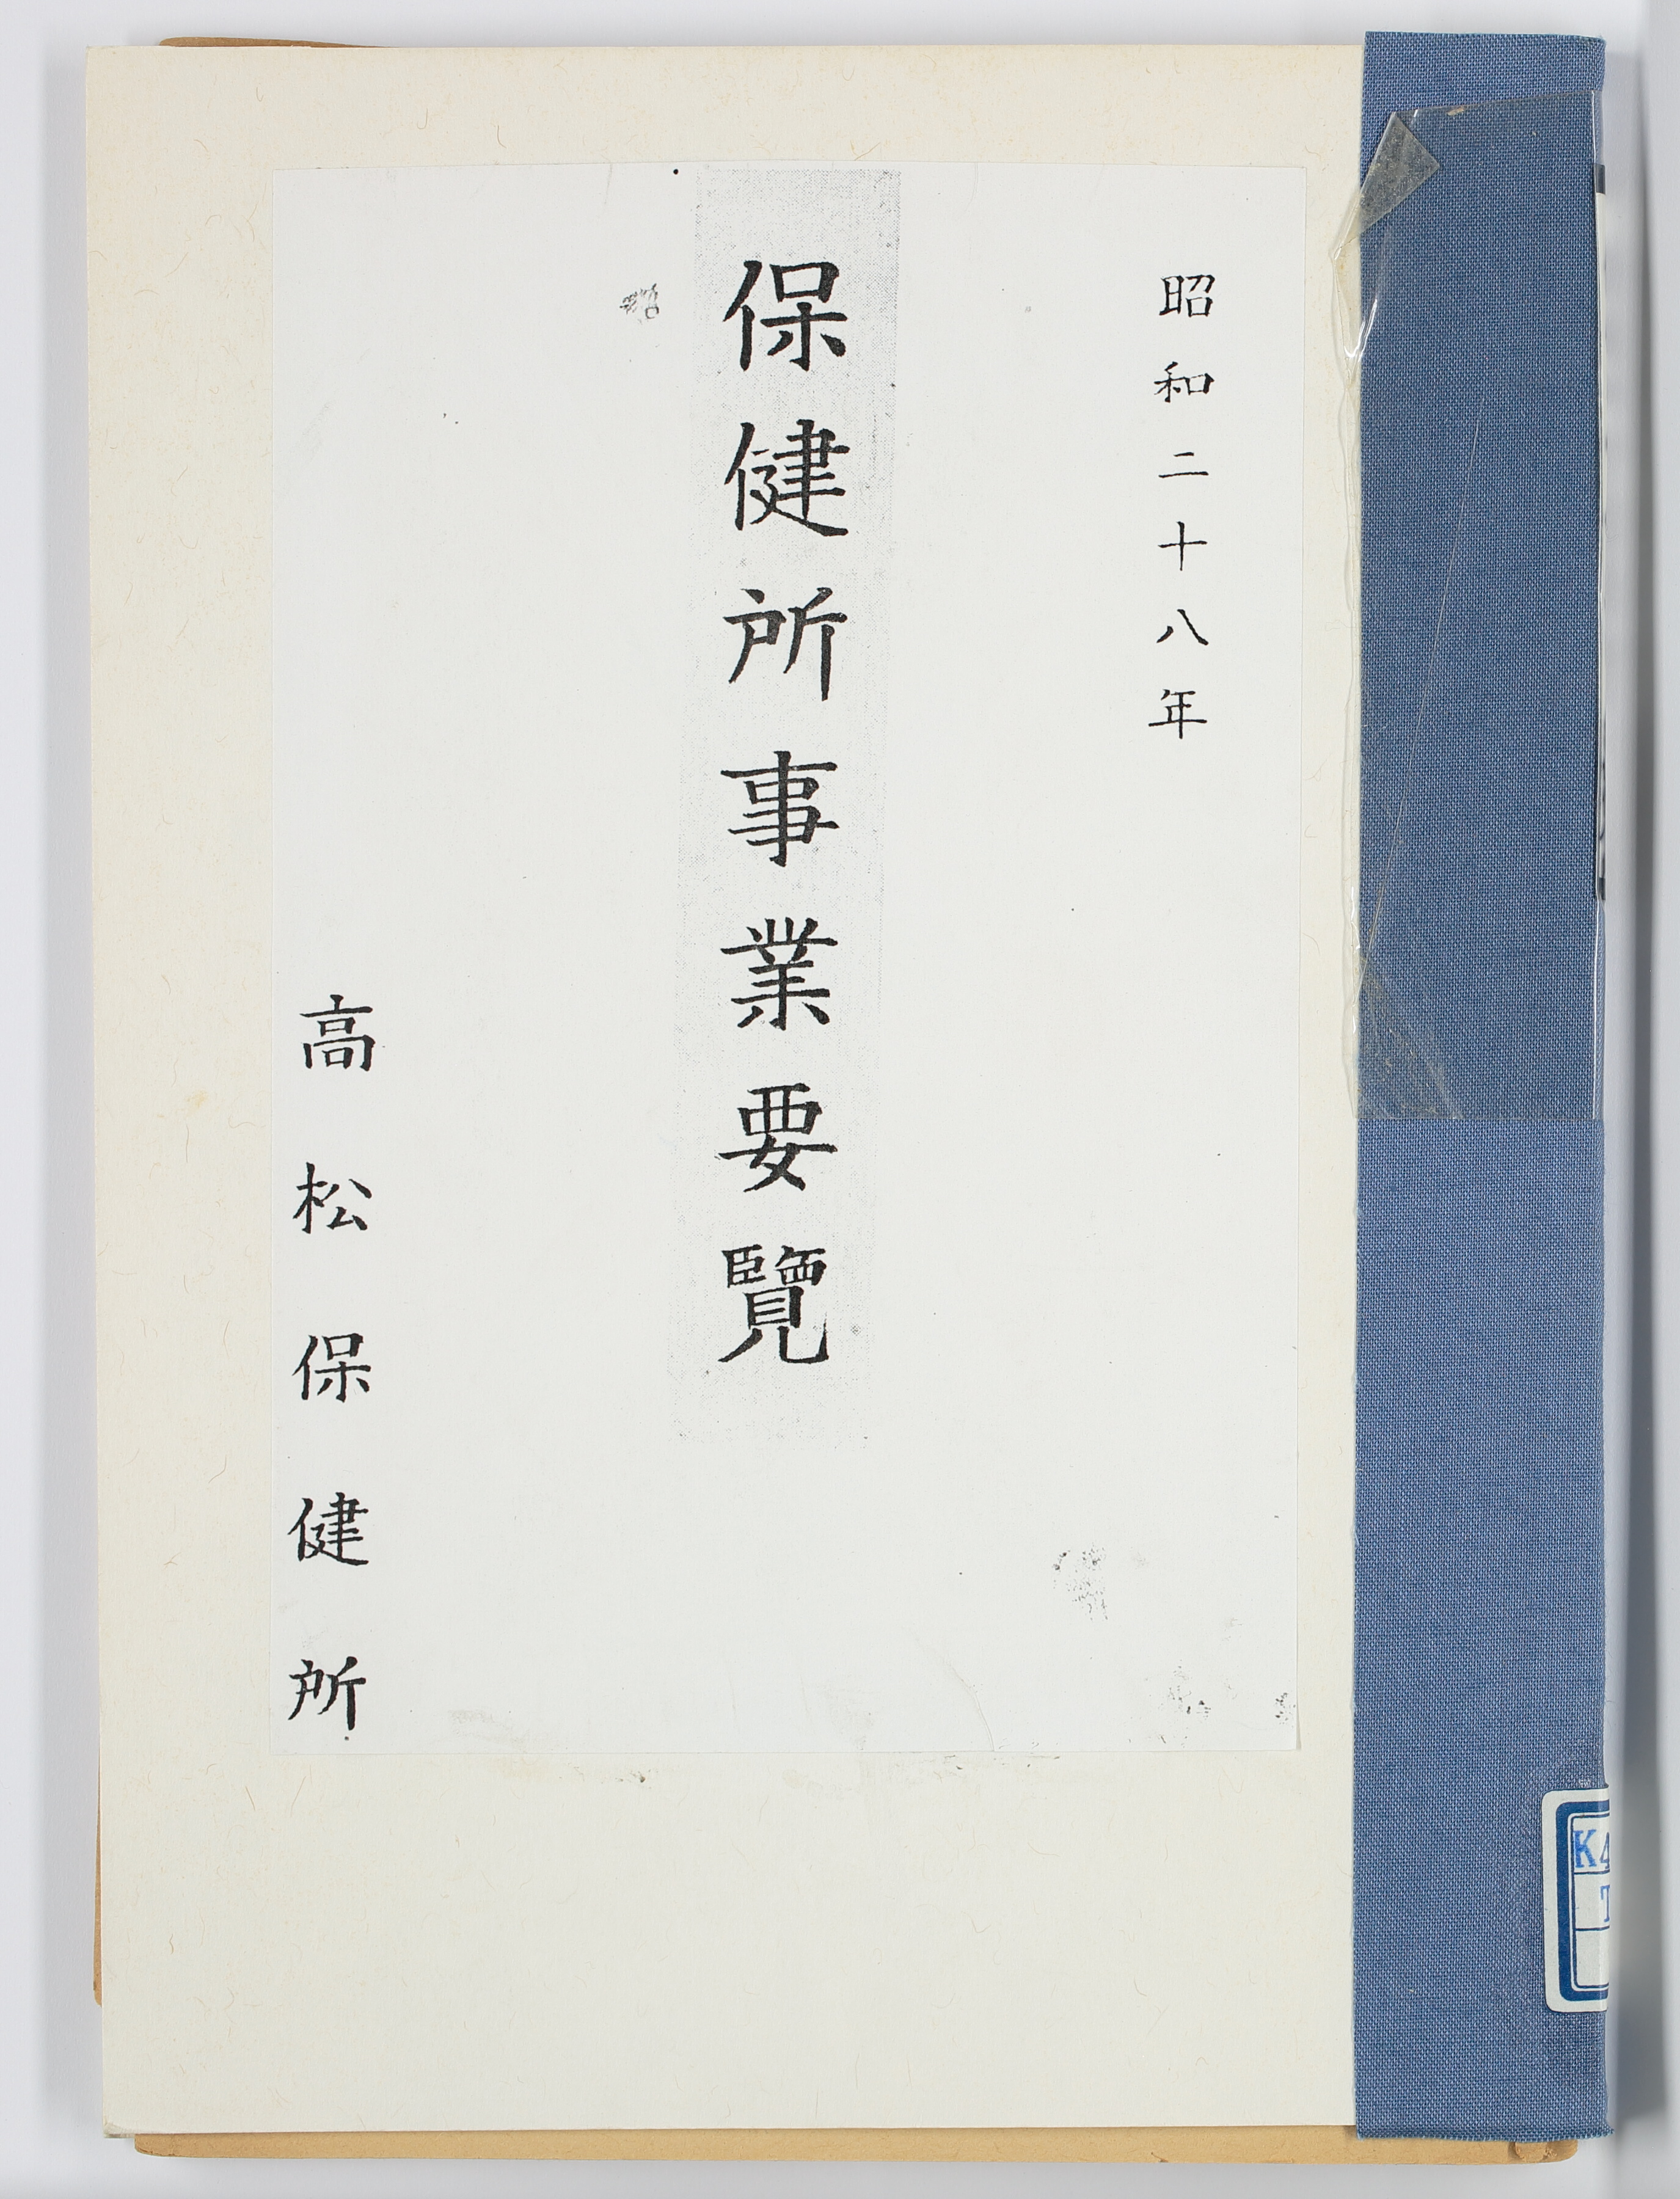 昭和二十八年
保健所事業要覽
高松保健所
K4
T